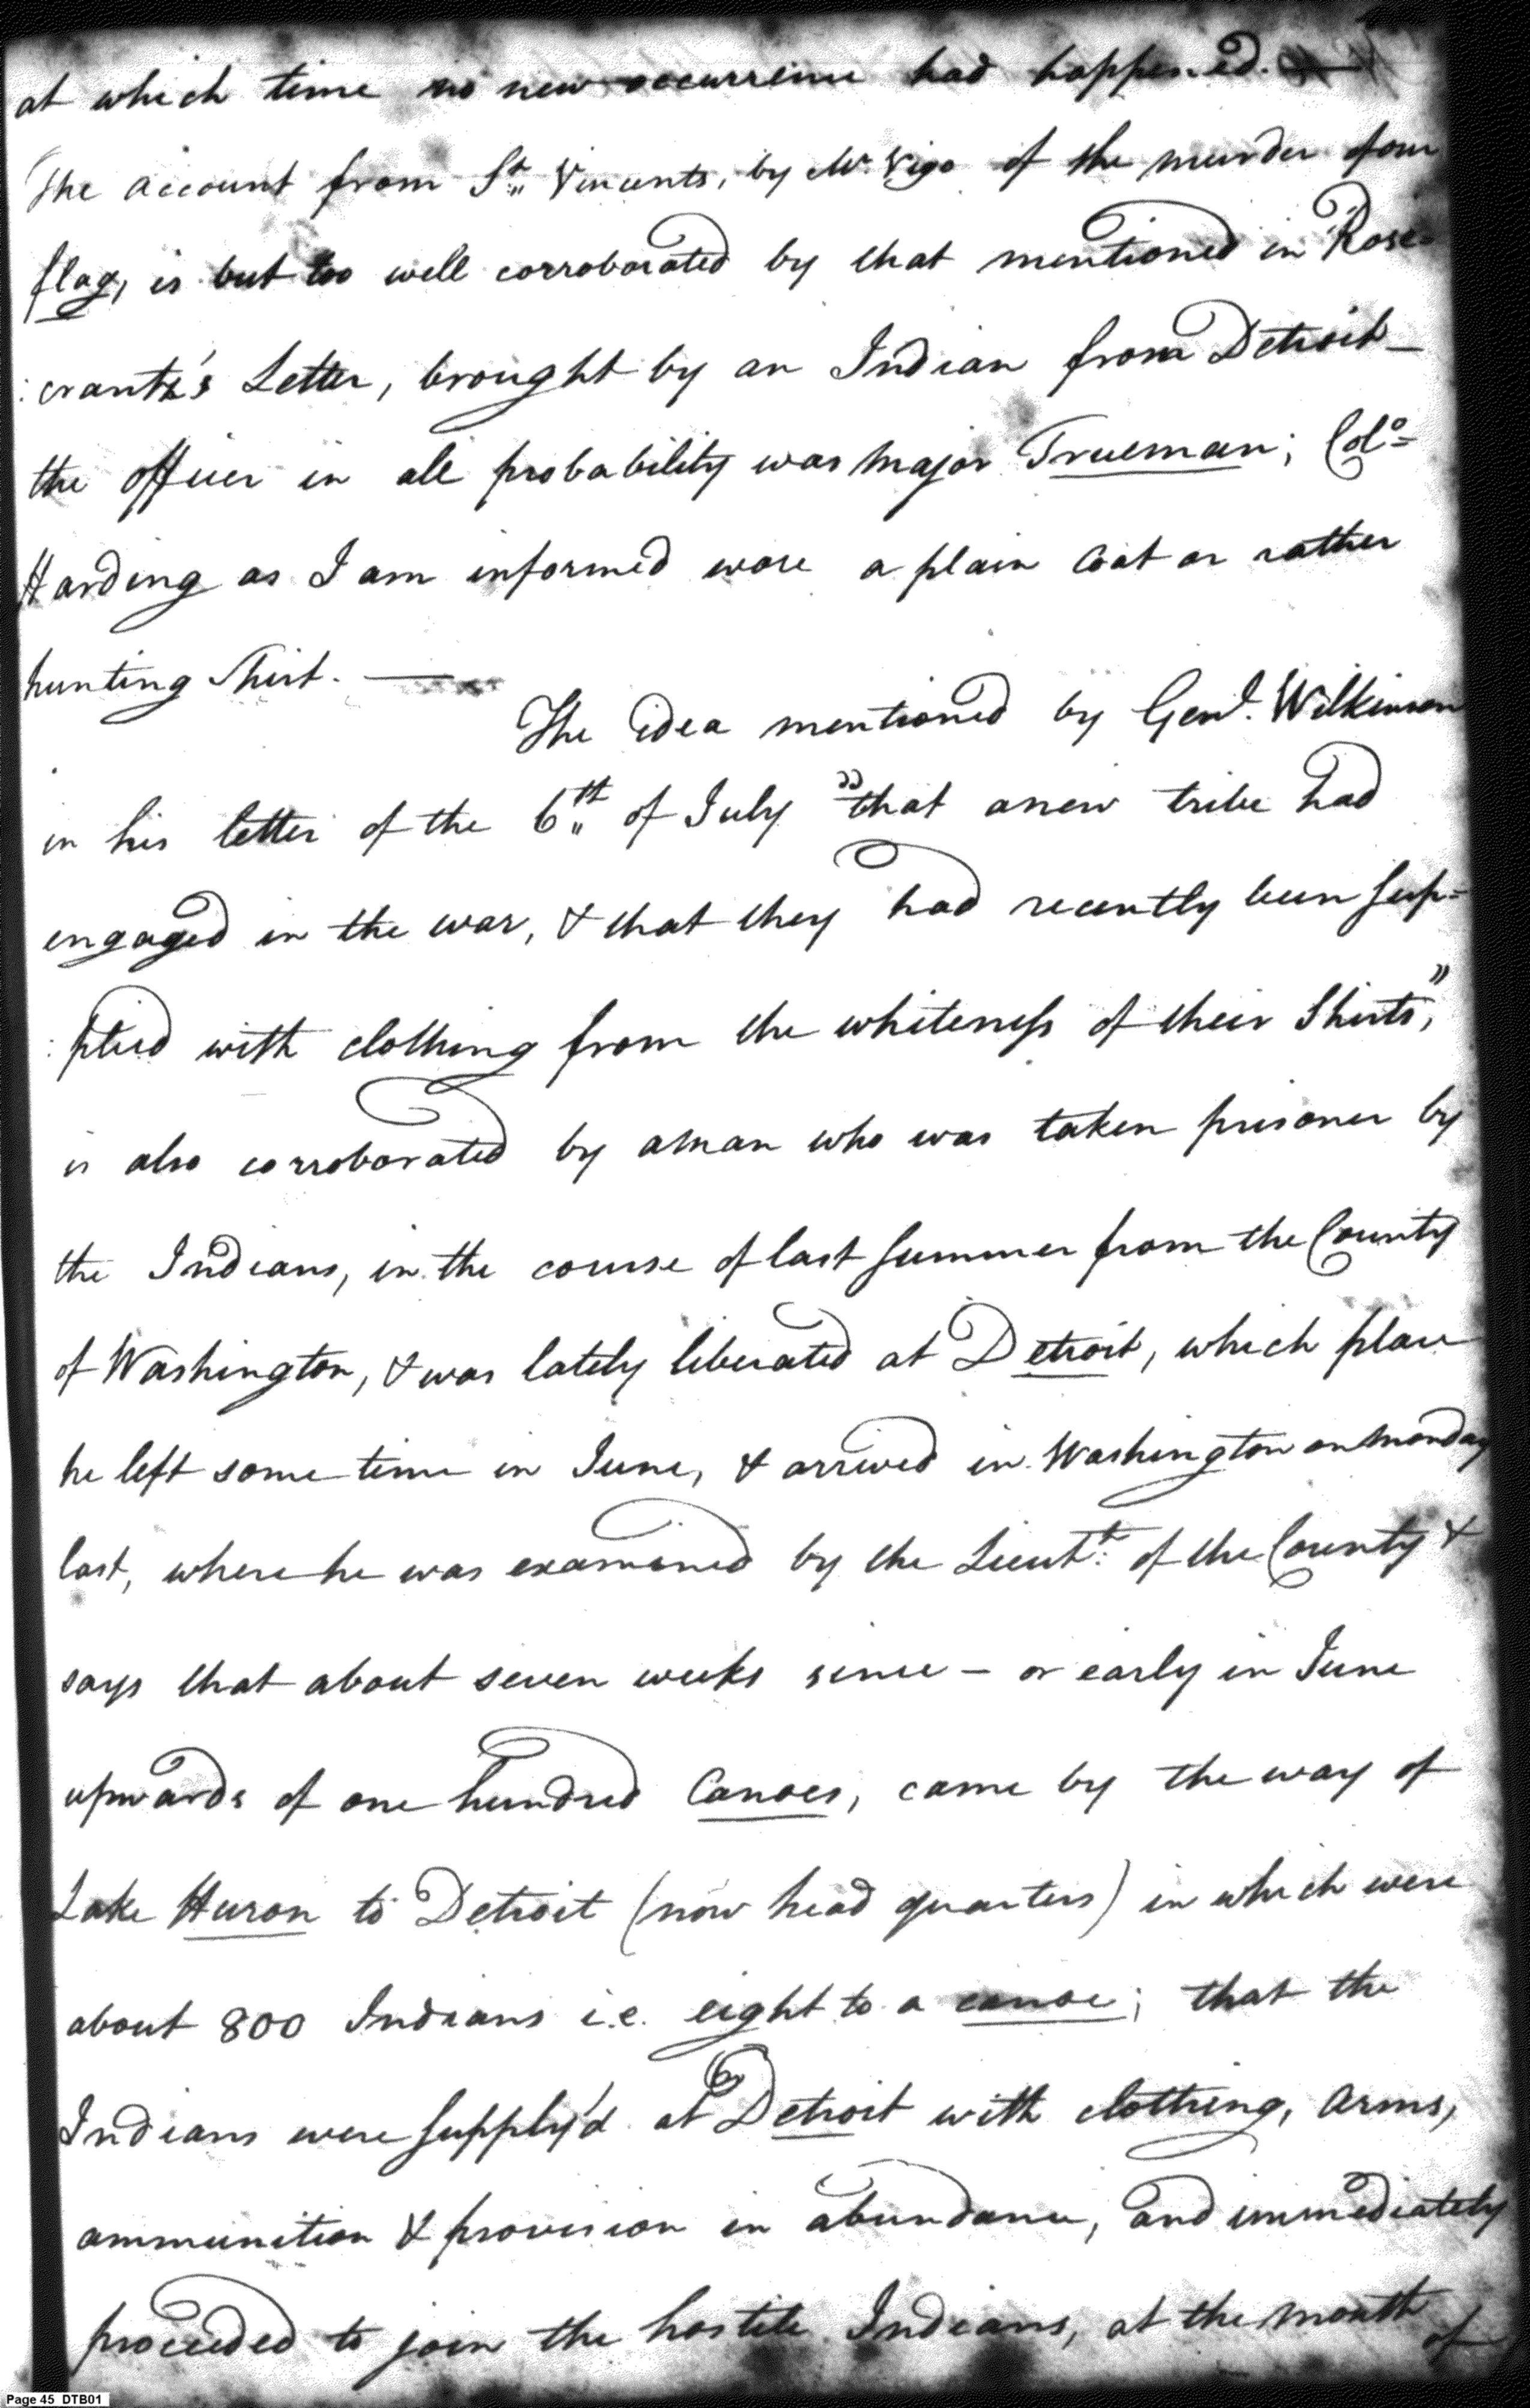 at which time no new occurrence had happened.
The account from St. Vincents, by Mr. Vigo of the murder of our
flag, is but too well corroborated by that mentioned in Rose-
:crantz's Letter, brought by an Indian from Detroit—
the officer in all probability was major Trueman; Colo=
Harding as I am informed wore a plain Coat or rather
hunting Shirt. —
The idea mentioned by Genl. Wilkinson
in his letter of the 6th of July "that a new tribe had
engaged in the war, & that they had recently been sup=
:plied with clothing from the whiteness of their Shirts,"
is also corroborated by a man who was taken prisoner by
the Indians, in the course of last Summer from the County
of Washington, & was lately liberated at Detroit, which place
he left some time in June, & arrived in Washington on monday
last, where he was examined by the Lieutt. of the County &
says that about seven weeks since – or early in June
upwards of one hundred Canoes, came by the way of
Lake Huron to Detroit (now head quarters) in which were
about 800 Indians i.e. eight to a canoe; that the
Indians were supply'd at Detroit with clothing, arms,
ammunition & provision in abundance, and immediately
proceeded to join the hostile Indians, at the mouth of
Page 45 DTB01